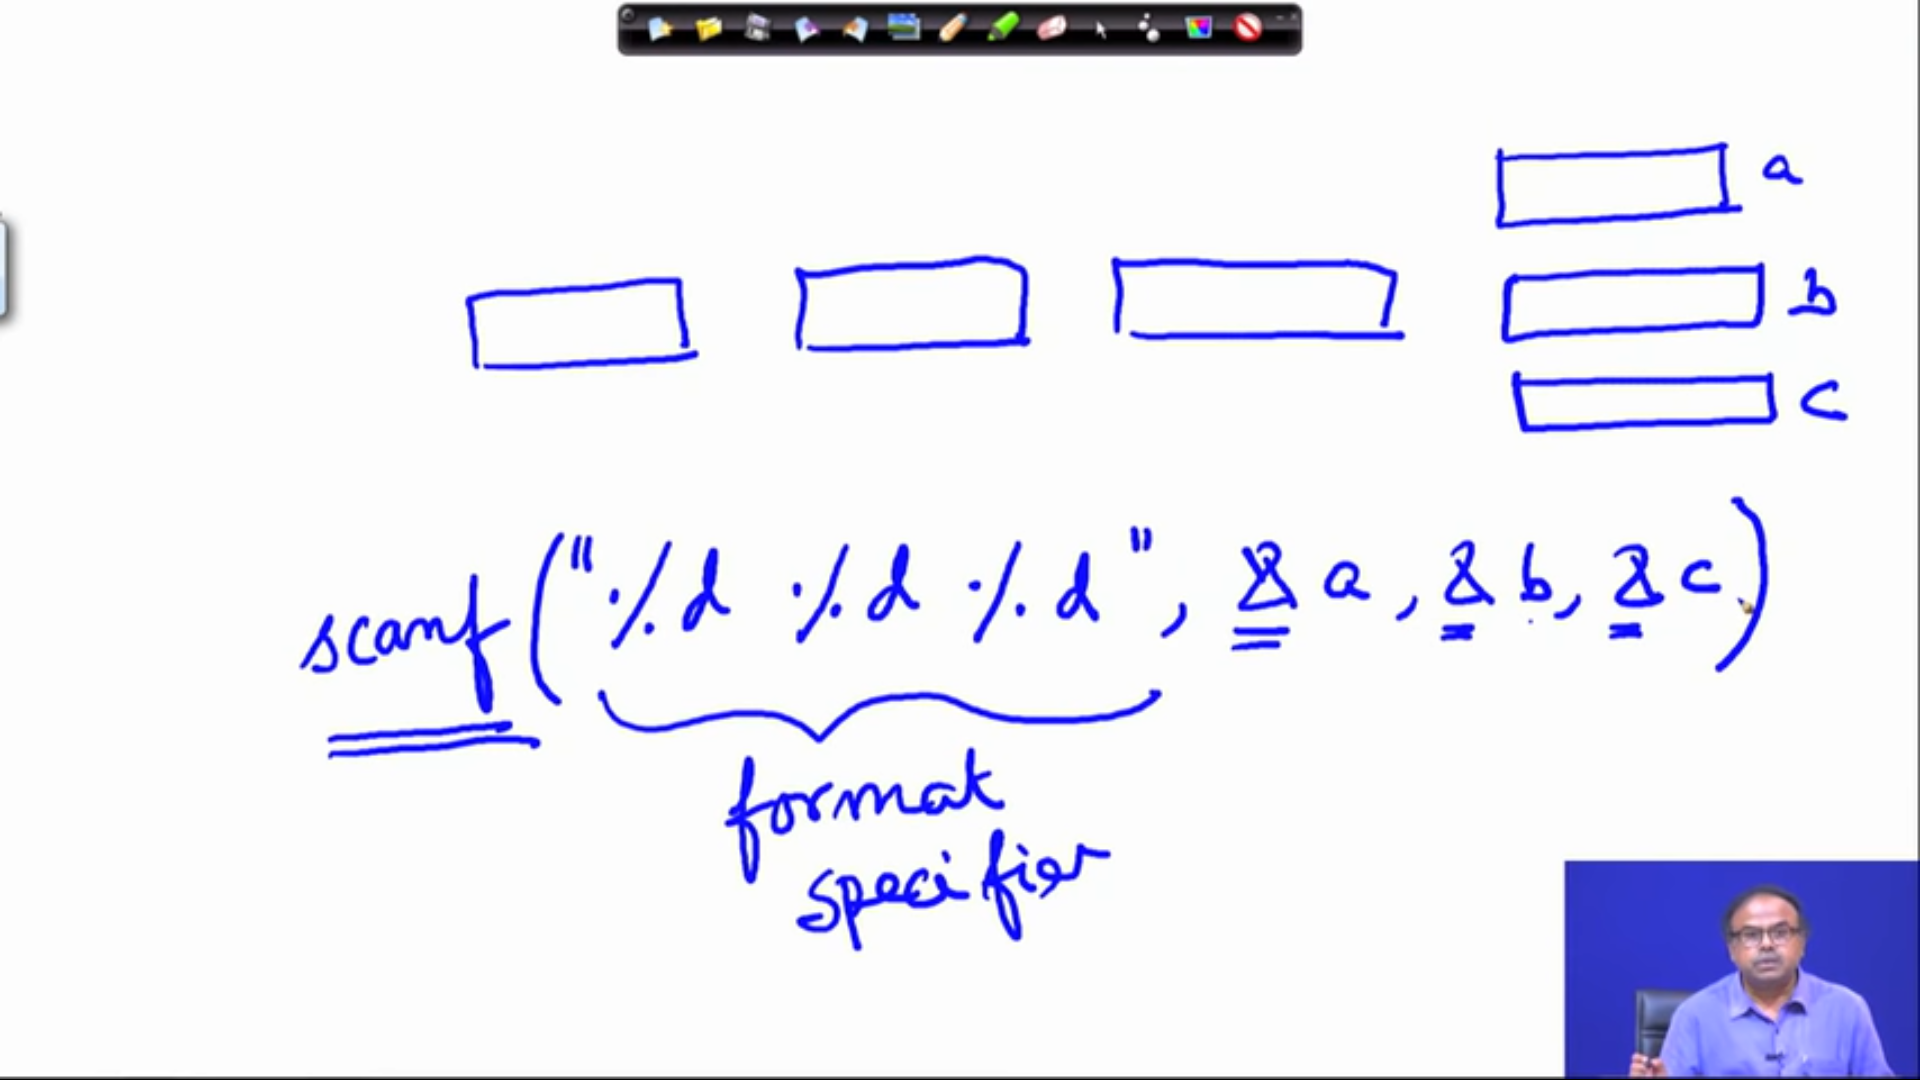 a
b
c
scanf ("%d %d %d", &a, &b, &c)
format
specifier